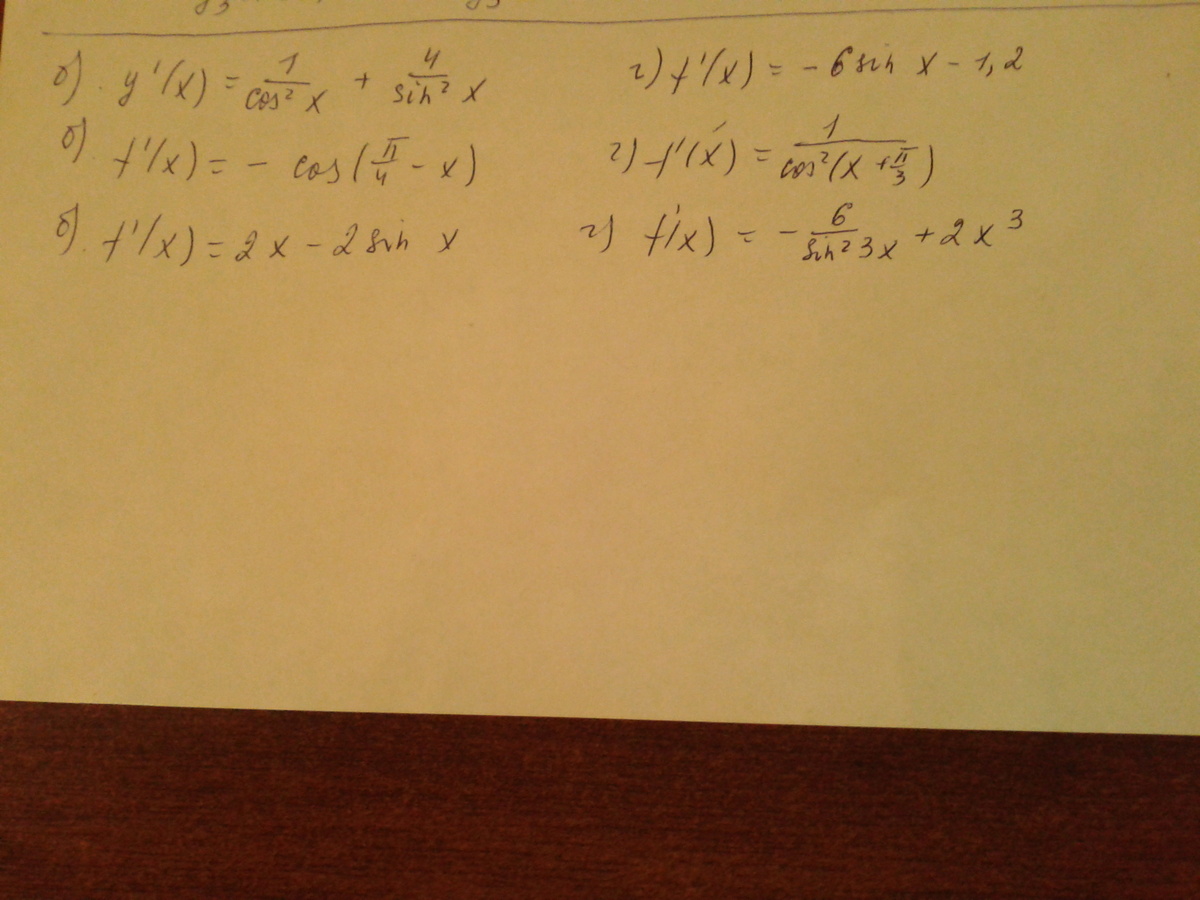 б). y'(x) = 1/cos² x + 4/sin² x г) f'(x) = - 6 sin x - 1,2
б). f'(x) = - cos(π/4 - x) г) f'(x) = 1/cos²(x + π/3)
б). f'(x) = 2x - 2 sin x г) f'(x) = - 6/sin² 3x + 2x³